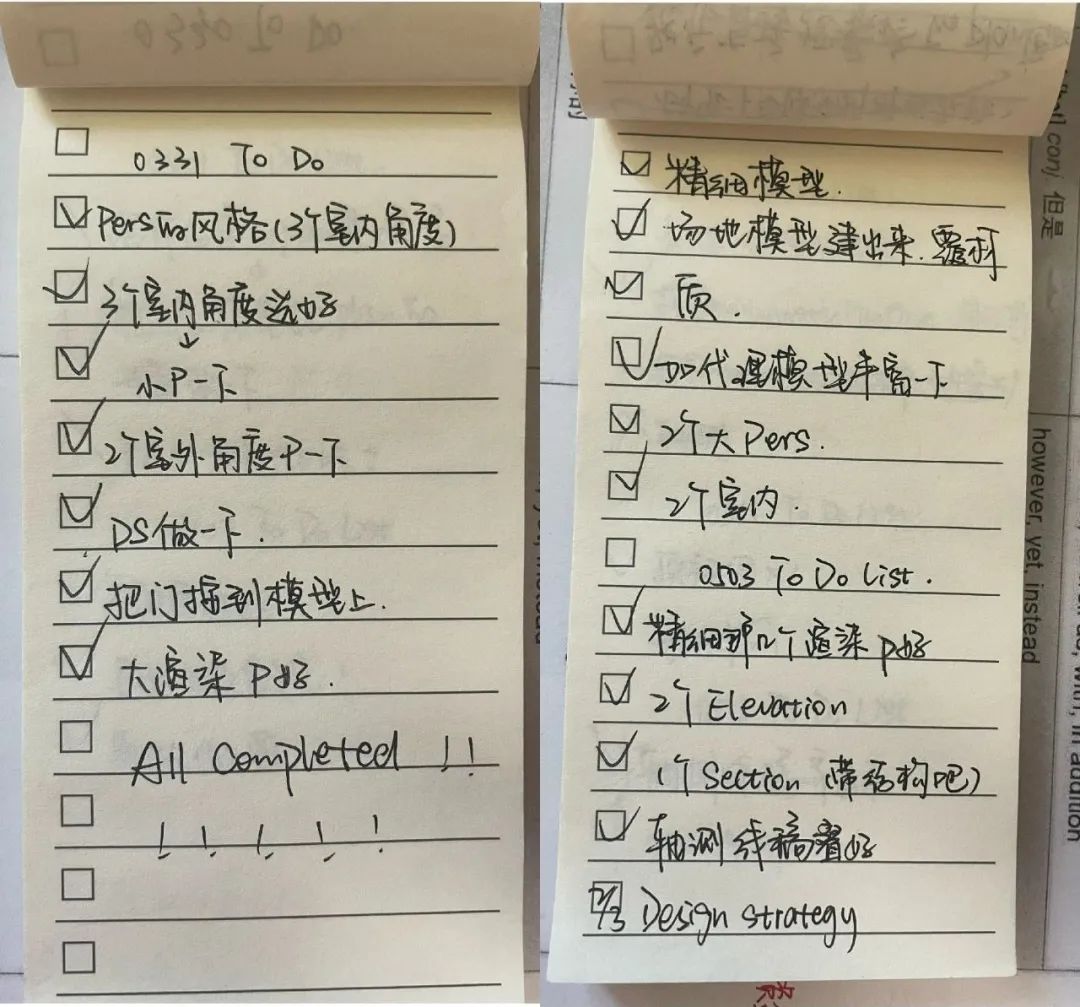 0331 To Do
Pers 风格(3个室内角度)
3个室内角度选好
↓
小P一下
2个室外角度P一下
DS做一下.
把门搞到模型上.
大渲染P好.
All Completed !!
! ! ! ! !
精细模型.
场地模型建出来.覆材
质.
代理模型丰富一下
2个大Pers.
2个室内.
0503 To Do List.
精细那几个渲染P好
2个Elevation
1个Section (带结构吧)
轴测线稿番好
2/3 Design strategy
的
conj. 但是
however, yet, instead
with, in addition